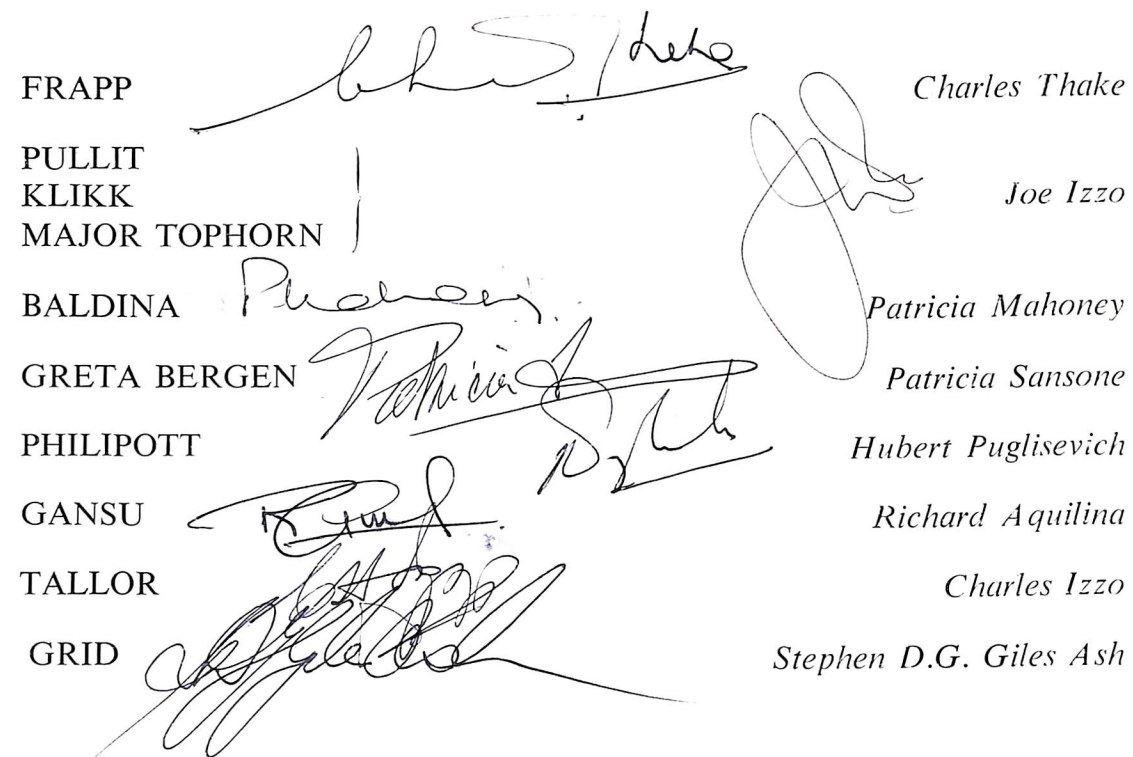 FRAPP Charles Thake
PULLIT
KLIKK Joe Izzo
MAJOR TOPHORN
BALDINA Patricia Mahoney
GRETA BERGEN Patricia Sansone
PHILIPOTT Hubert Puglisevich
GANSU Richard Aquilina
TALLOR Charles Izzo
GRID Stephen D.G. Giles Ash